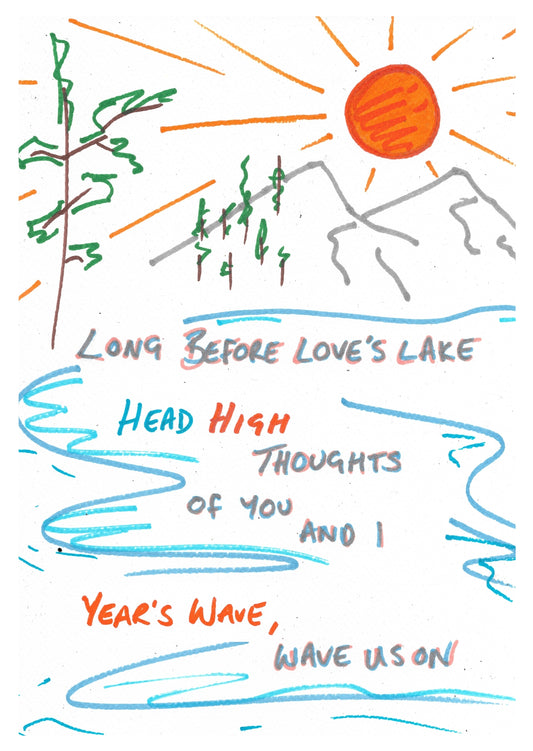 LONG BEFORE LOVE'S LAKE
HEAD HIGH
THOUGHTS
OF YOU
AND I
YEAR'S WAVE,
WAVE US ON